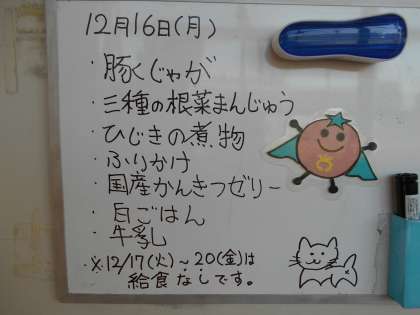 12月16日(月)
・豚じゃが
・三種の根菜まんじゅう
・ひじきの煮物
・ふりかけ
・国産かんきつゼリー
・白ごはん
・牛乳
・※12/17(火)~20(金)は
給食なしです。